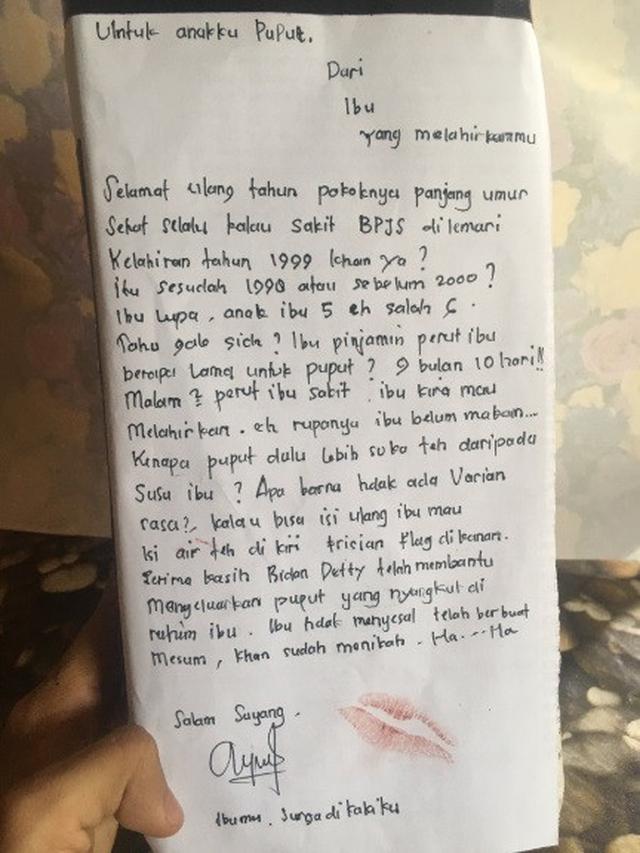 Untuk anakku Puput.
Dari
Ibu
yang melahirkanmu
Selamat ulang tahun pokoknya panjang umur
Sehat selalu kalau sakit BPJS dilemari
Kelahiran tahun 1999 khan ya ?
itu sesudah 1990 atau sebelum 2000 ?
Ibu lupa, anak ibu 5 eh salah 6.
Tahu gak sich ? Ibu pinjamin perut ibu
berapa lama untuk puput ? 9 bulan 10 hari!!
Malam 2 perut ibu sakit . ibu kira mau
Melahirkan. eh rupanya ibu belum makan...
Kenapa puput dulu lebih suka teh daripada
Susu ibu ? Apa karna tidak ada Varian
rasa?, kalau bisa isi ulang ibu mau
Isi air teh di kiri frisian flag di kanan.
Terima kasih Bidan Detty telah membantu
mengeluarkan puput yang nyangkut di
rahim ibu. Ibu tidak menyesal telah berbuat
Mesum, khan sudah menikah. Ha...Ha
Salam Sayang.
Ibumu. Surga di kakiku